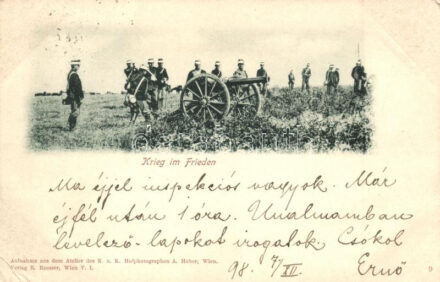 Krieg im Frieden
Ma éjjel inspekciós vagyok. Már
éjfél után 1 óra. Unalmamban
levelező-lapokat irogatok. Csókol
98. 7/XII. Ernő
Aufnahme aus dem Atelier des K. u. K. Hofphotographen A. Huber, Wien.
Verlag R. Wien V. I.
9